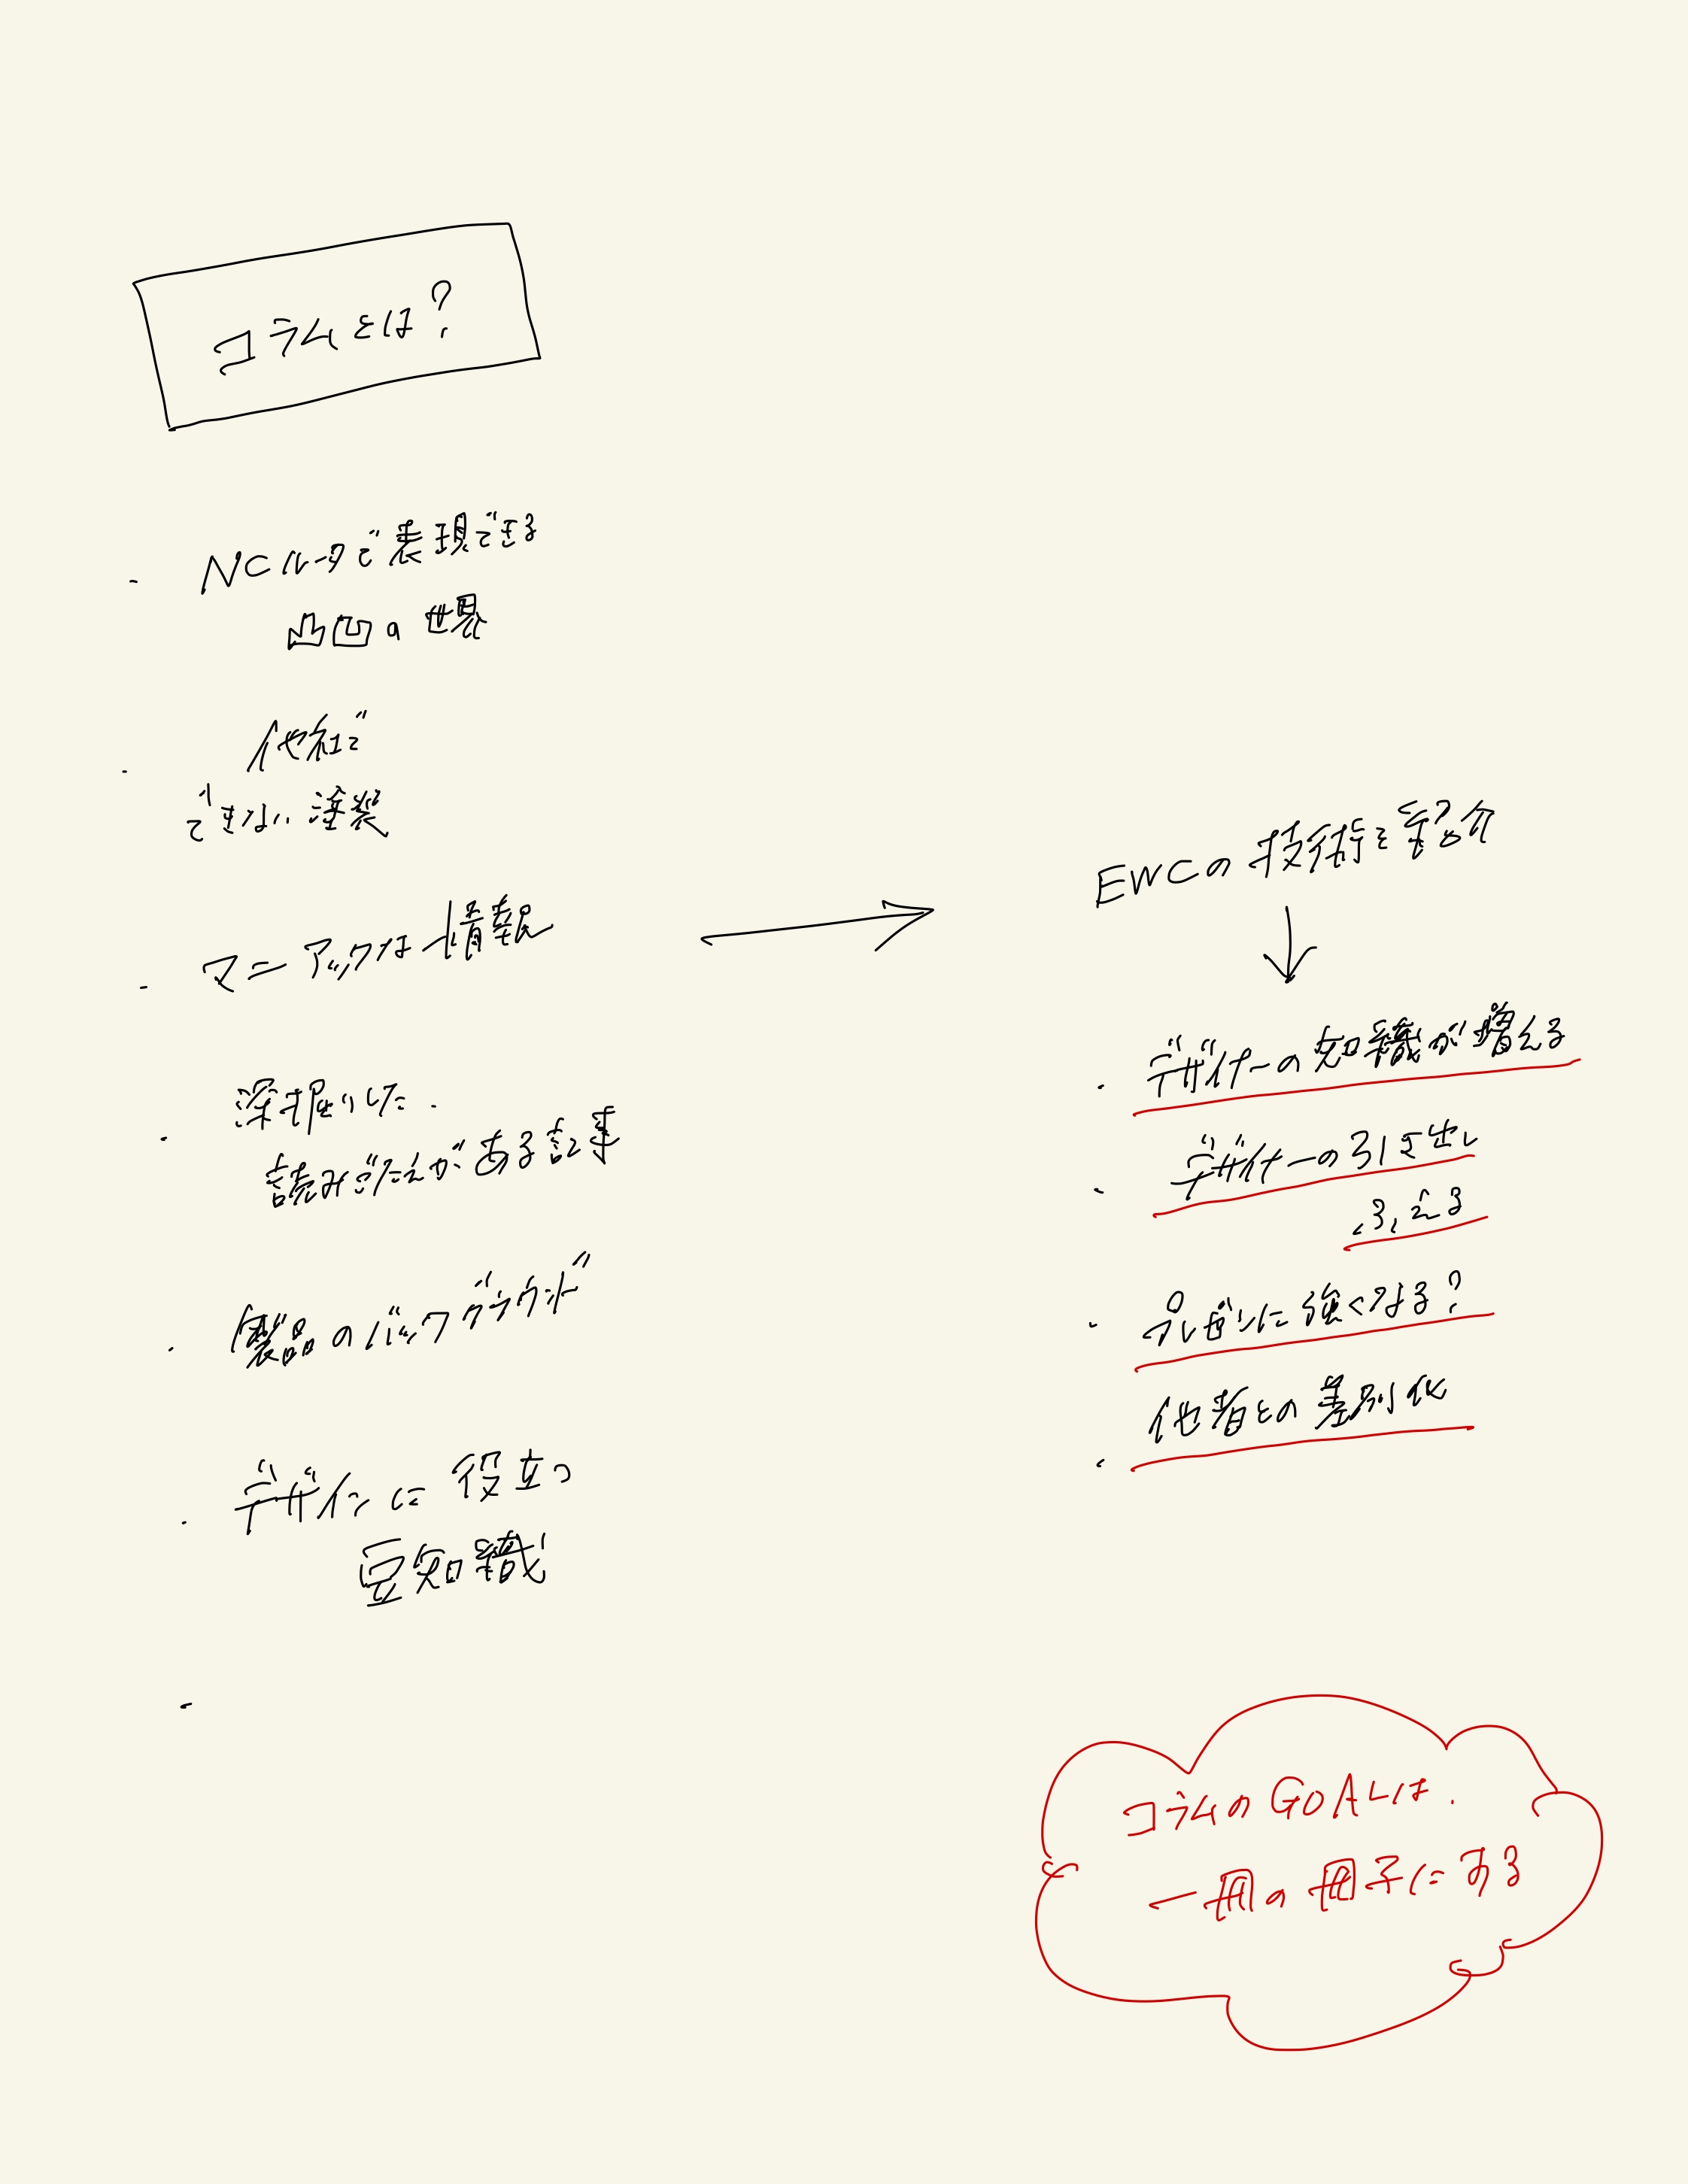 コラムとは?
・ NCルータで表現できる
凸凹の世界
・ 他社で
できない塗装
・ マニアックな情報
・ 深掘りした.
読みごたえがある記事
・ 製品のバックグラウンド
・ デザインに役立つ
豆知識
・
EWCの技術を紹介
・ デザイナーの知識が増える
・ デザイナーの引き出し
ふえる
・ プレゼンに強くなる?
・ 他者との差別化
コラムのGOALは.
一冊の冊子にする